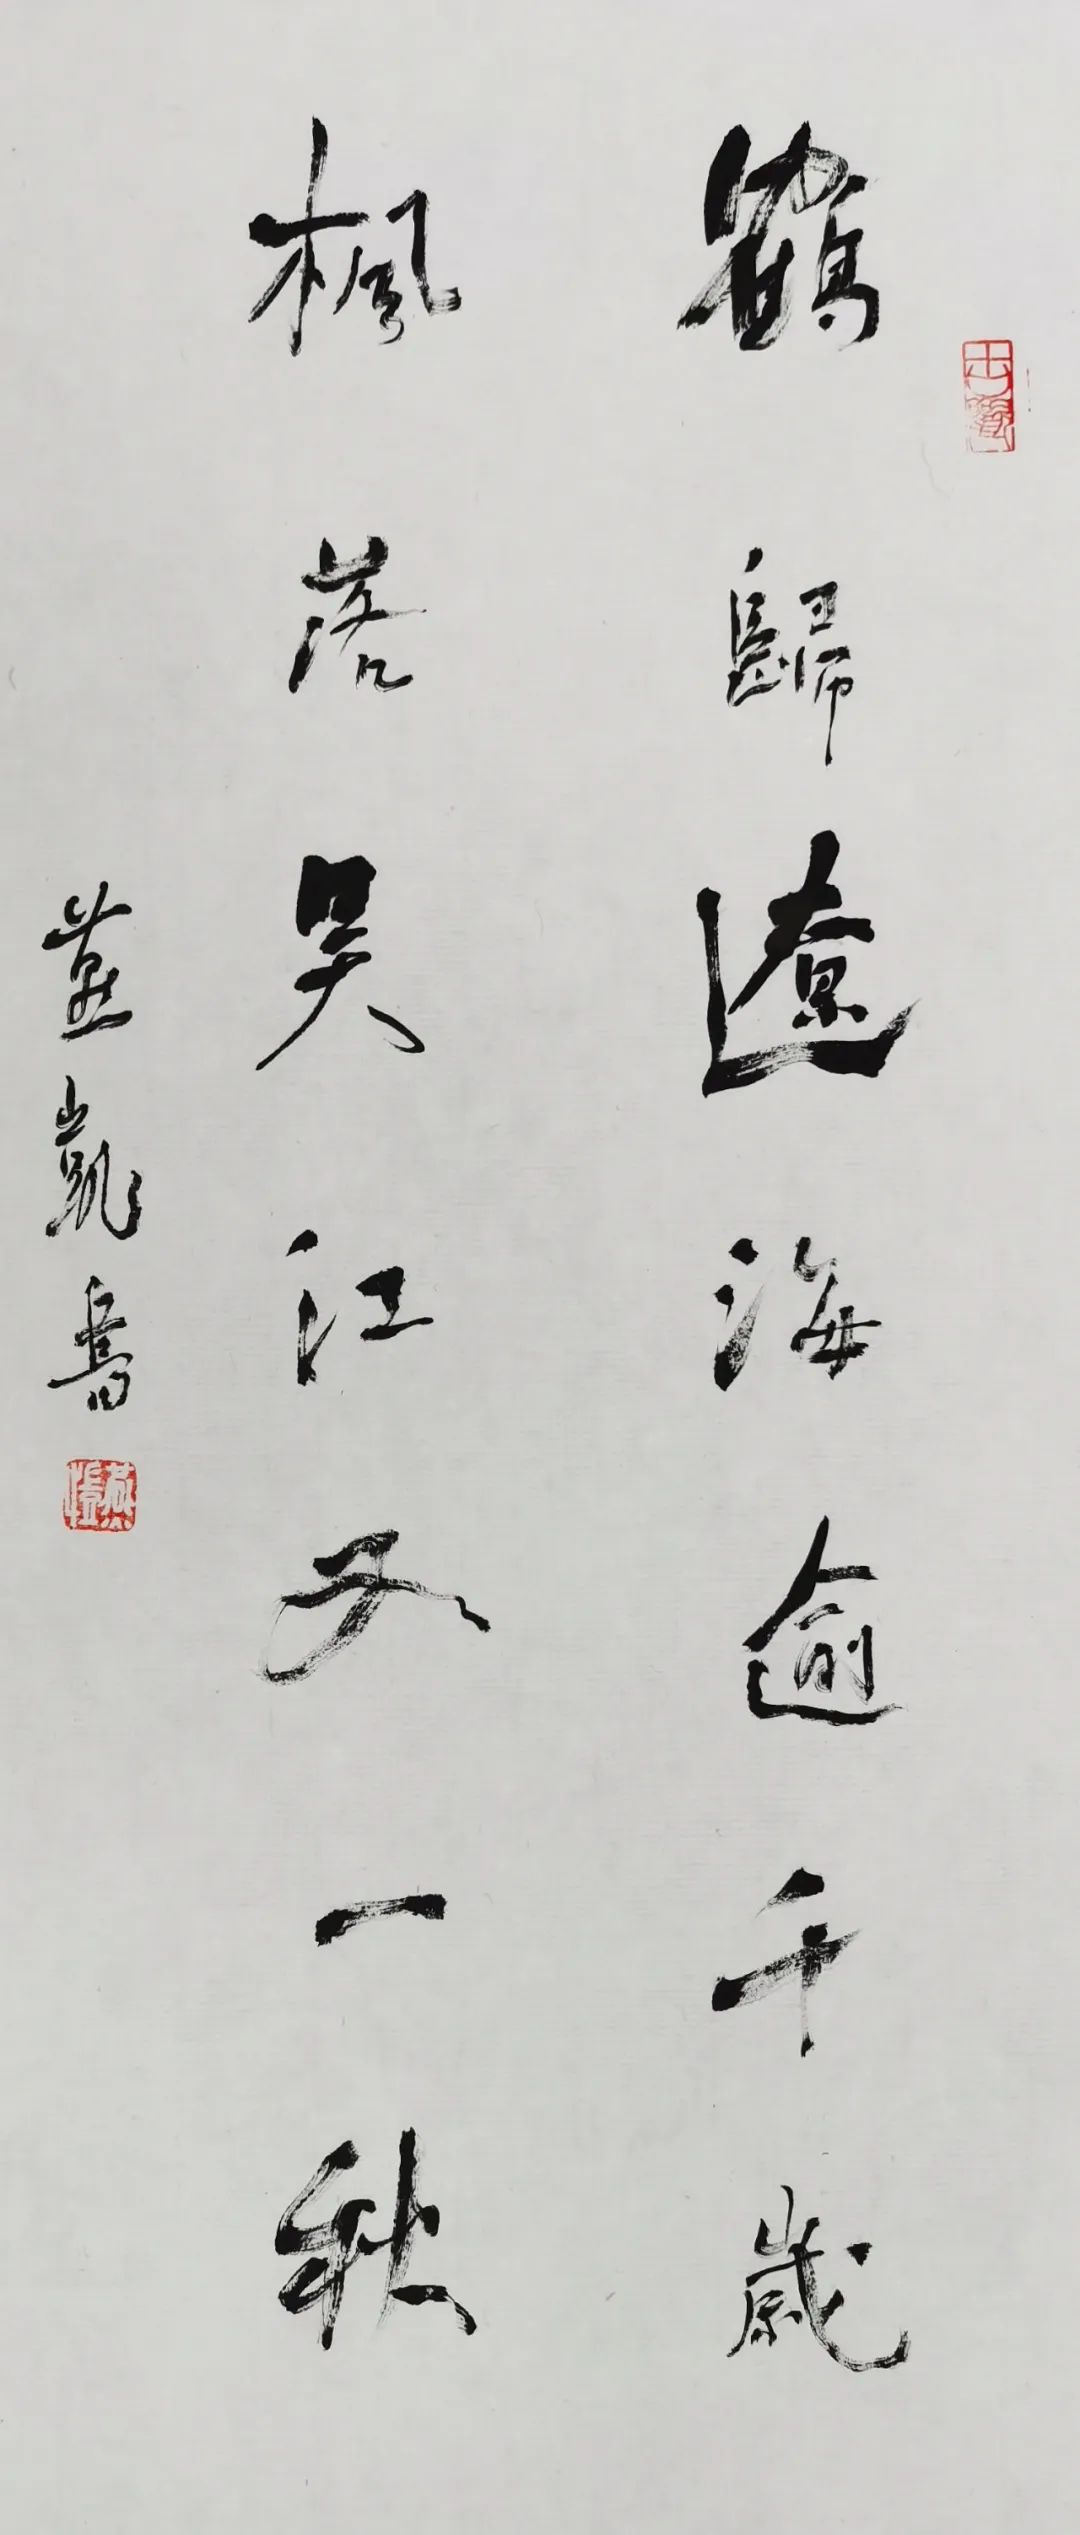 鶴歸遼海逾千歲
楓落吴江又一秋
燕凱書